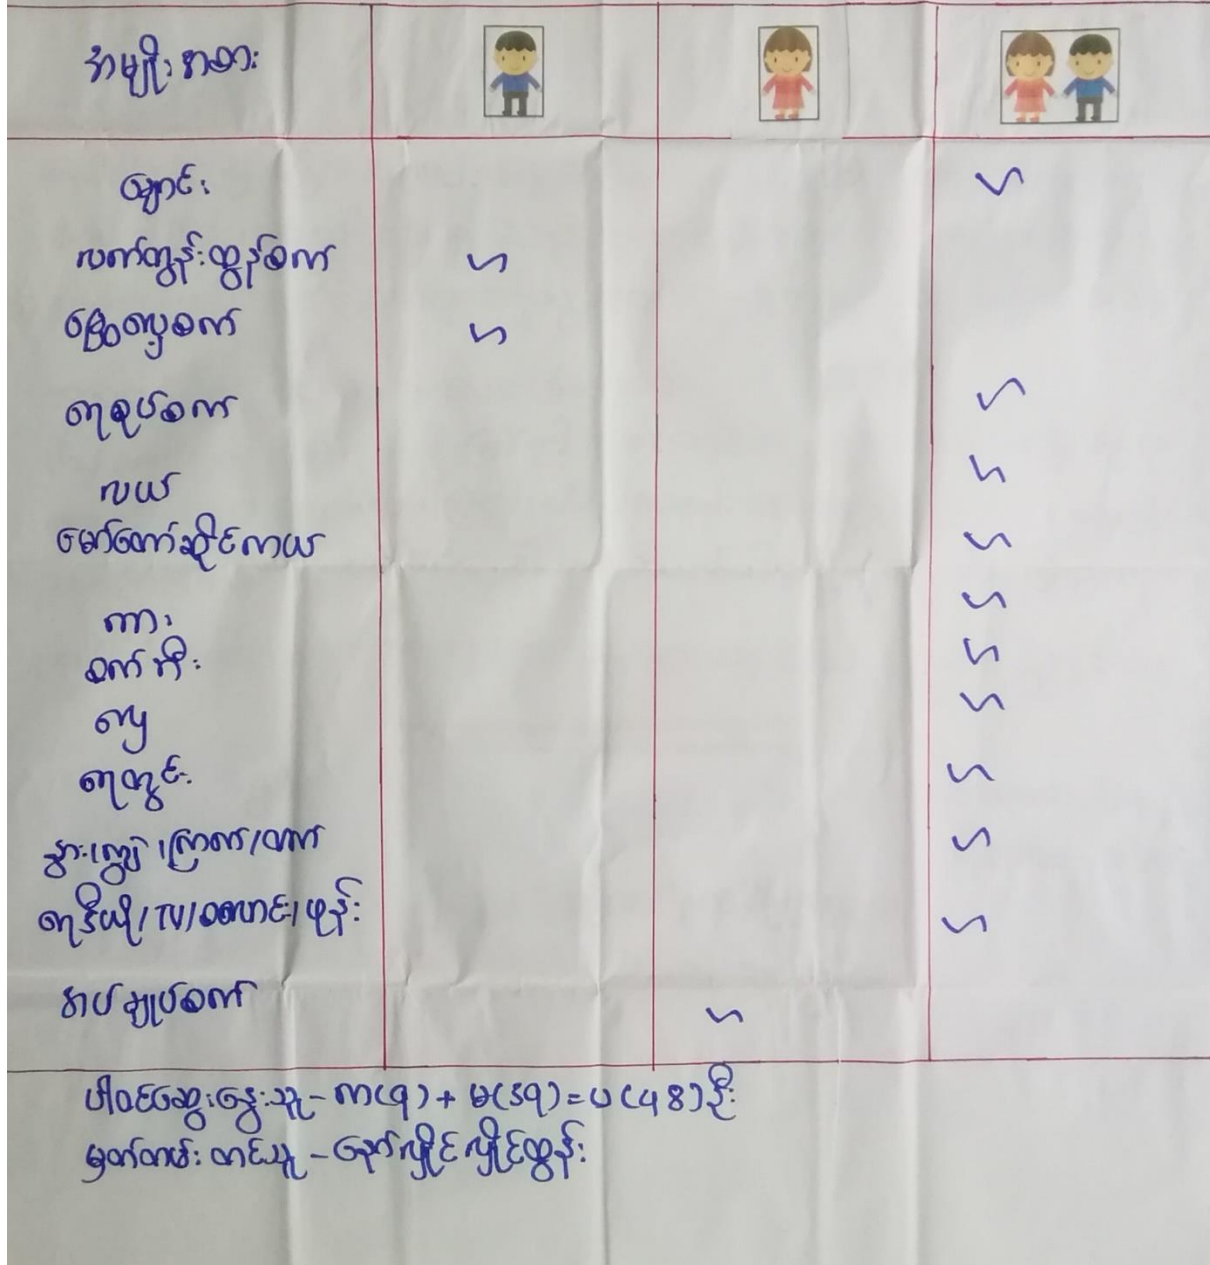 အမျိုးအစား
ချောင်း
လက်တွန်းထွန်စက်
ခြွေလှေ့စက်
ရေစုပ်စက်
လယ်
မော်တော်ဆိုင်ကယ်
ကား
စက်ဘီး
လှေ
ရေတွင်း
နွား၊ကျွဲ၊ကြက်၊ဝက်
ရေဒီယို/TV/စလောင်း/ဖုန်း
အပ်ချုပ်စက်
ပါဝင်ဆွေးနွေးသူ - ကာ(၅) + မ(၃၅) = ပ(၄၈)ဦး
မှတ်တမ်းတင်သူ - နော်လှိုင်လှိုင်ထွန်း